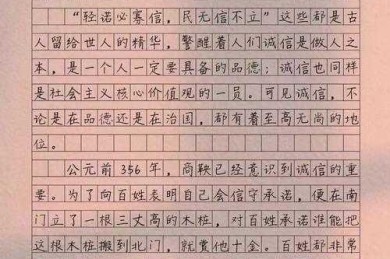 “轻诺必寡信，民无信不立”这些都是古
人留给世人的精华，警醒着人们诚信是做人之
本，是一个人一定要具备的品德；诚信也同样
是社会主义核心价值观的一员。可见诚信，不
论是在品德还是在治国，都有着至高无尚的地
位。
公元前356年，商鞅已经意识到诚信的重
要。为了向百姓表明自己会信守承诺，便在南
门立了一根三丈高的木桩，对百姓承诺谁能把
这根木桩搬到北门，就赏他十金。百姓都非常